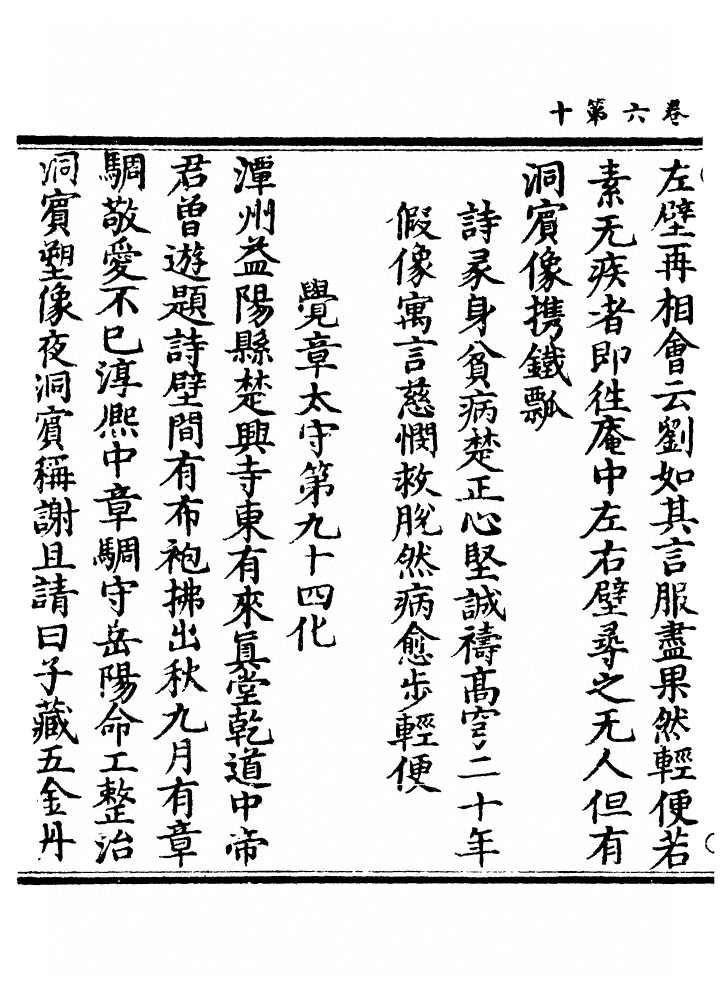 卷六第十
左壁再相會云劉如其言服盡果然輕便若
素无疾者即徃庵中左右壁尋之无人但有
洞賔像携鐵瓢
詩㝷身貧病楚正心堅誠禱髙穹二十年
假像寓言慈憫救脫然病愈步輕便
覺章太守第九十四化
潭州益陽縣楚興寺東有來眞堂乾道中帝
君曾遊題詩壁間有布袍拂出秋九月有章
騆敬愛不已淳熈中章騆守岳陽命工整治
洞賔塑像夜洞賔稱謝且請曰子藏五金丹